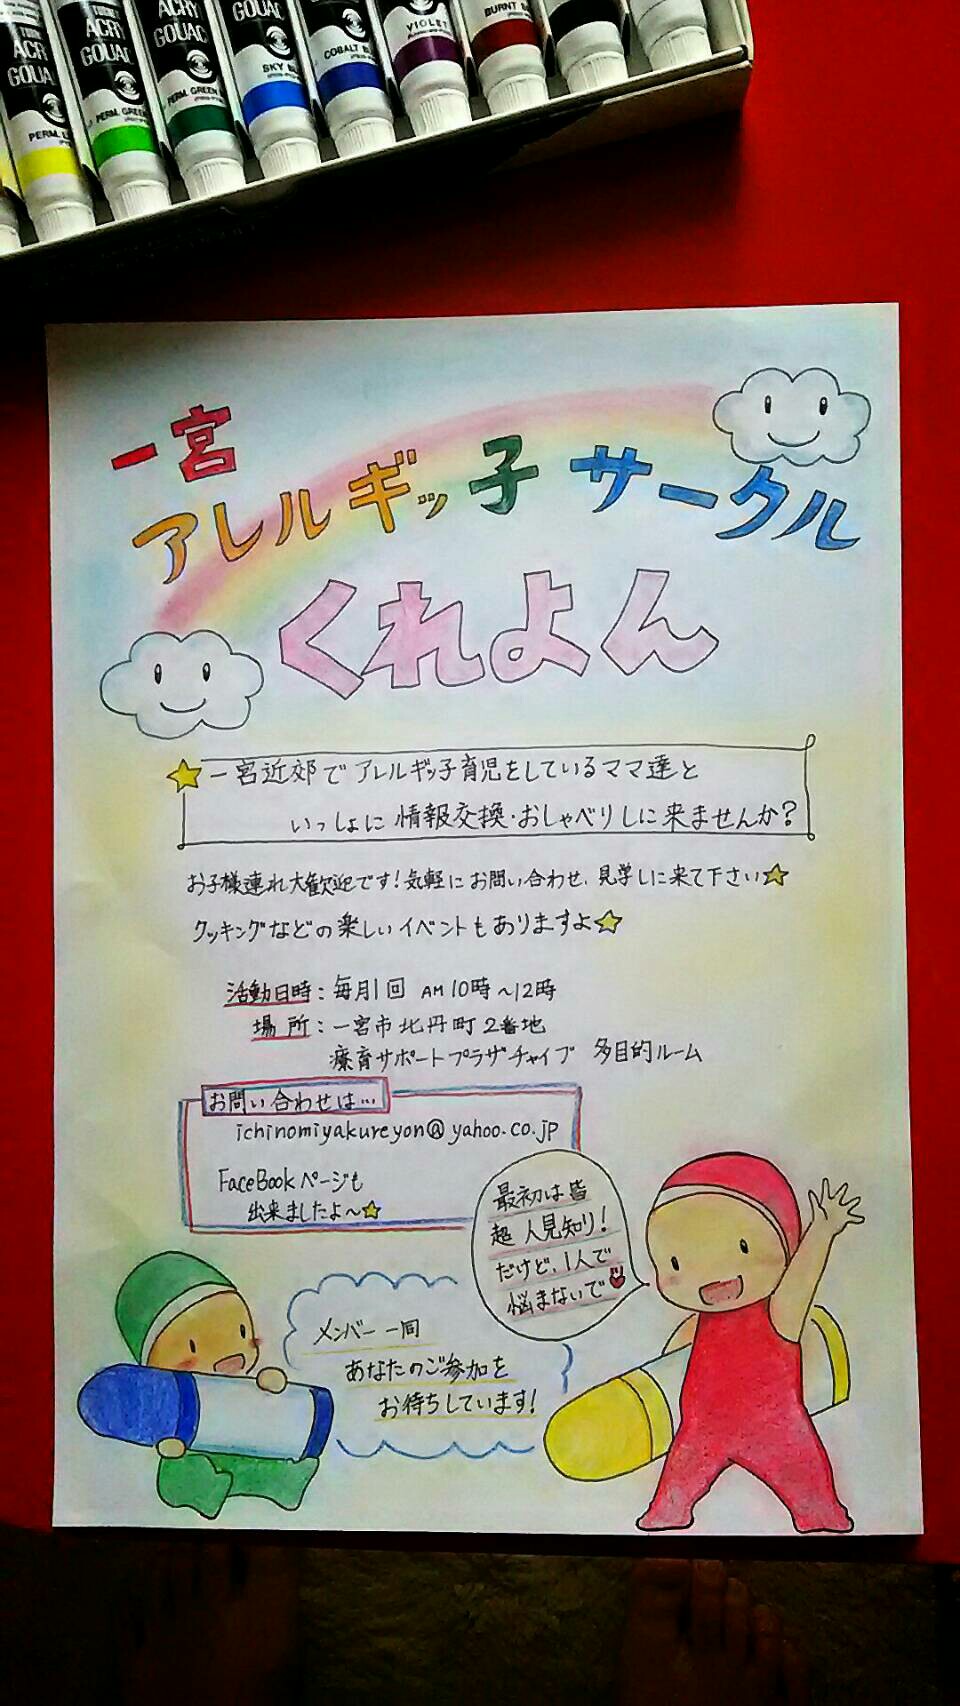 ACRY
GOUAC
ACRY
GOUAC
ACRY
GOUAC
GOUAC
PERM. GREEN
PERM. GREEN
COBALT
VIOLET
BURNT
一宮
アレルギッ子 サークル
くれよん
一宮近郊でアレルギッ子育児をしているママ達と
いっしょに情報交換・おしゃべりしに来ませんか?
お子様連れ大歓迎です!気軽にお問い合わせ、見学しに来て下さい☆
クッキングなどの楽しいイベントもありますよ☆
活動日時:毎月1回 AM10時~12時
場所:一宮市北丹町2番地
療育サポートプラザチャイブ 多目的ルーム
お問い合わせは…
ichinomiyakureyon@yahoo.co.jp
FaceBookページも
出来ましたよ~☆
最初は皆
超人見知り!
だけど、1人で
悩まないで♥
メンバー一同
あなたのご参加を
お待ちしています!